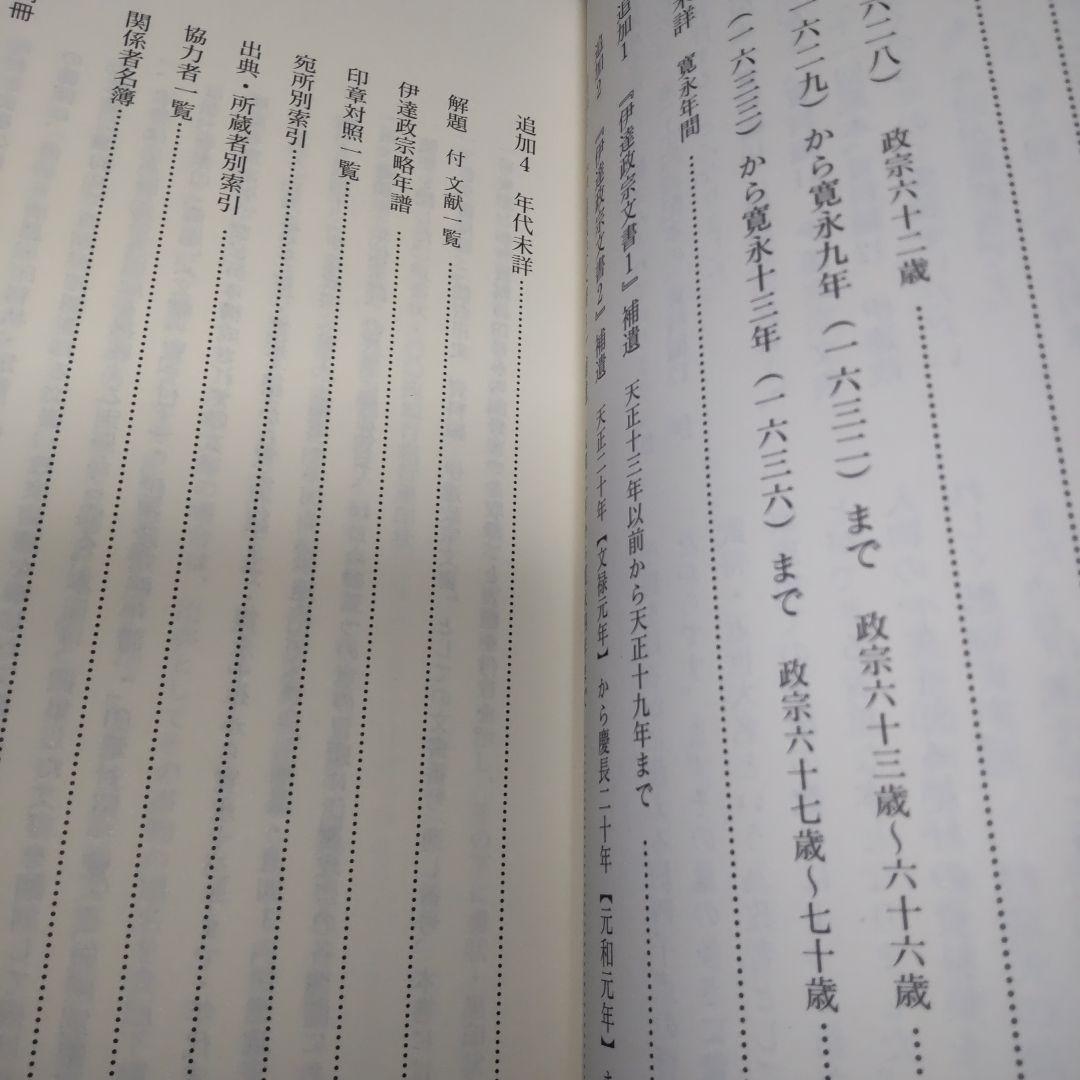 六二八） 政宗六十二歳
一六二九）から寛永九年（一六三二）まで 政宗六十三歳～六十六歳
（一六三三）から寛永十三年（一六三六）まで 政宗六十七歳～七十歳
未詳 寛永年間
追加1 『伊達政宗文書1』補遺 天正十三年以前から天正十九年まで
追加2 『伊達政宗文書2』補遺 天正二十年【文禄元年】から慶長二十年【元和元年】
追加4 年代未詳
解題 付 文献一覧
伊達政宗略年譜
印章対照一覧
宛所別索引
出典・所蔵者別索引
協力者一覧
関係者名簿
冊